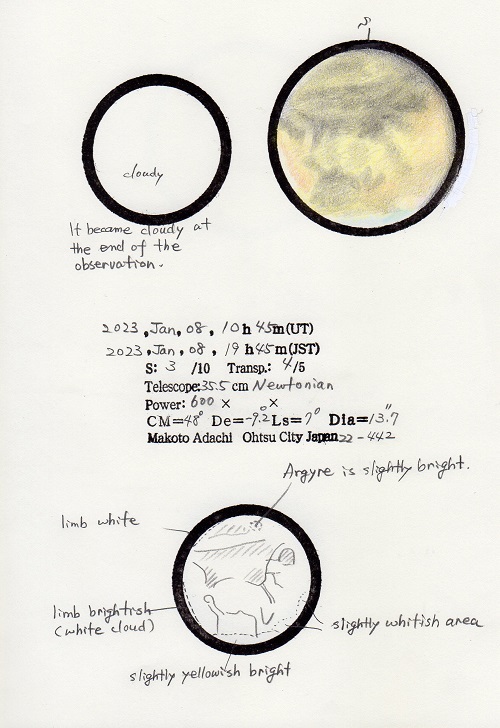 S
cloudy
It became cloudy at
the end of the
observation.
2023, Jan, 08, 10h 45m(UT)
2023, Jan, 08, 19h 45m(JST)
S: 3 /10 Transp.: 4/5
Telescope: 35.5 cm Newtonian
Power: 600 × ×
CM=48° De=-9.2° Ls=7° Dia=13.7"
Makoto Adachi Ohtsu City Japan 22-442
Argyre is slightly bright.
limb white
limb brightish
(white cloud)
slightly whitish area
slightly yellowish bright